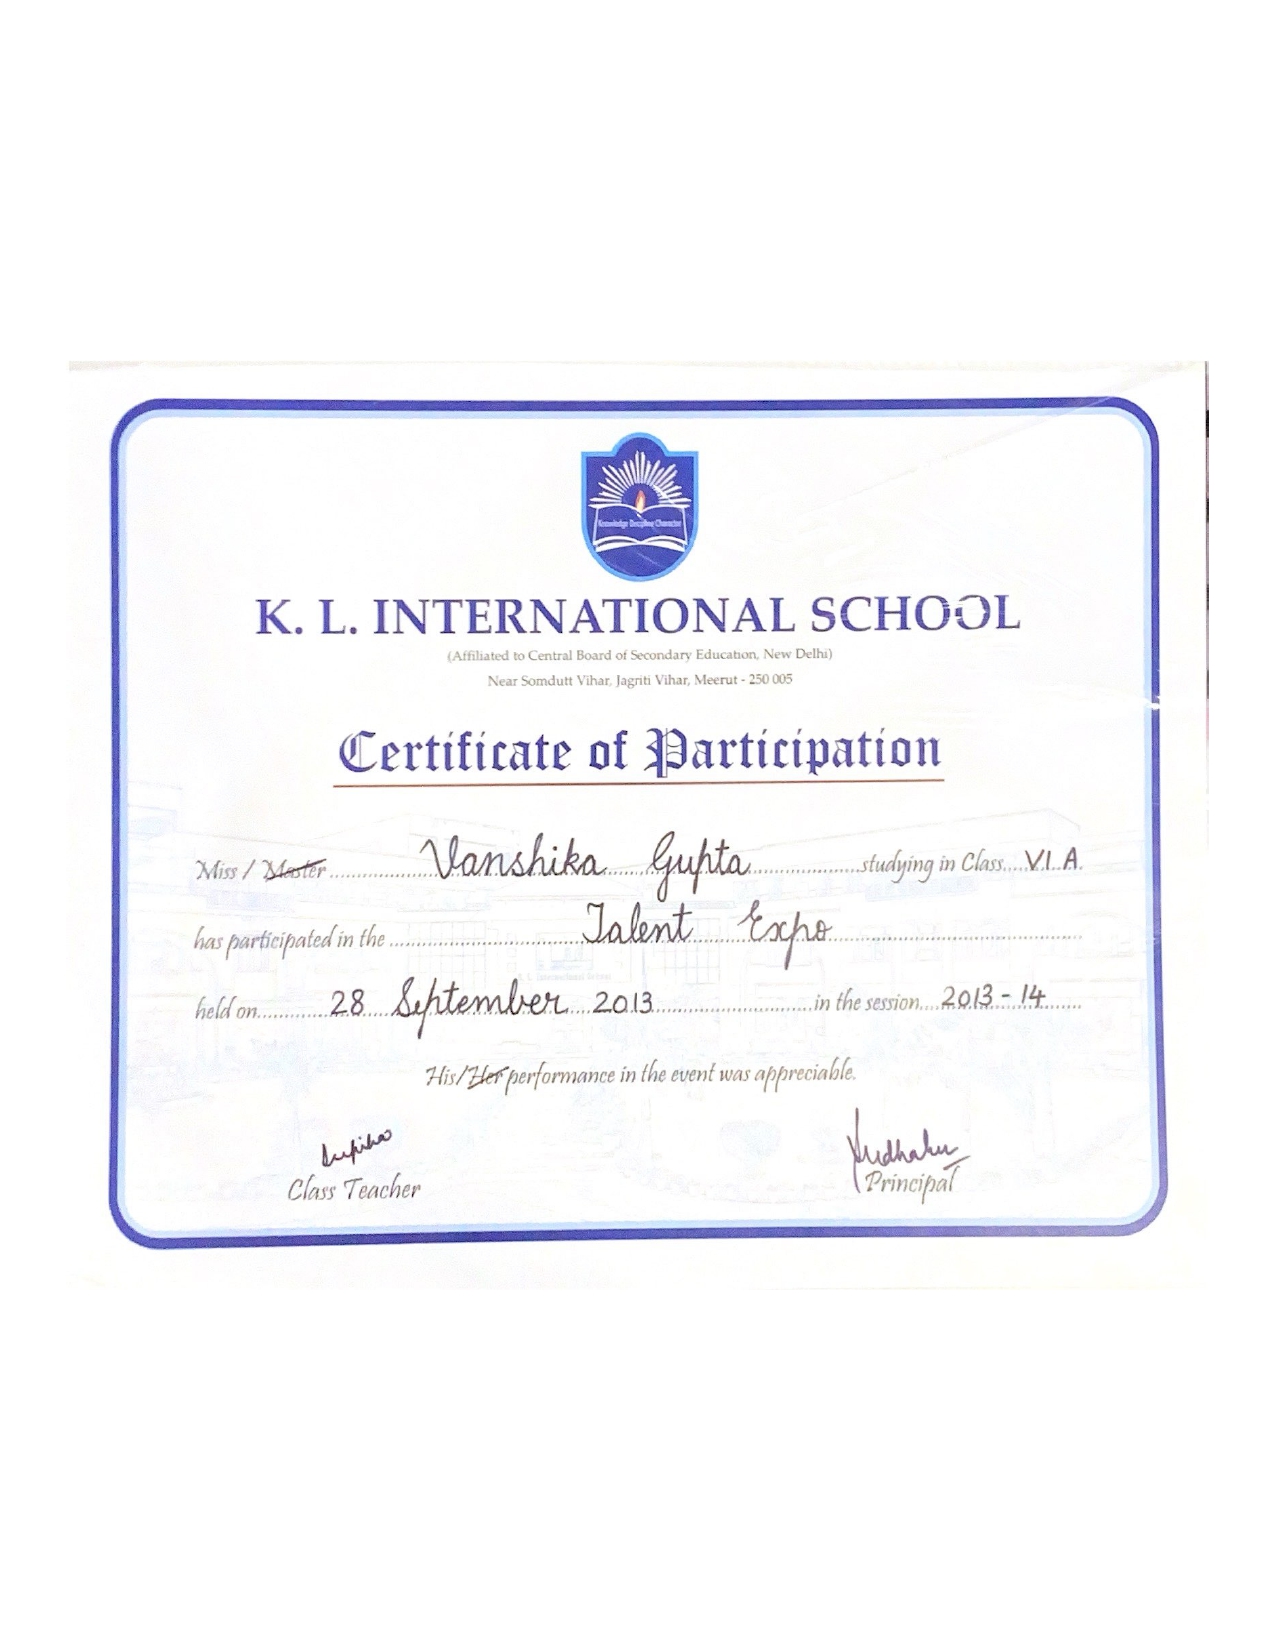 Knowledge Discipline Character
K. L. INTERNATIONAL SCHOOL
(Affiliated to Central Board of Secondary Education, New Delhi)
Near Somdutt Vihar, Jagriti Vihar, Meerut - 250 005
Certificate of Participation
Miss / Master Vanshika Gupta studying in Class VI A
has participated in the Talent Expo
held on 28 September 2013 in the session 2013-14
K. L. International School
His/Her performance in the event was appreciable.
Class Teacher
Principal